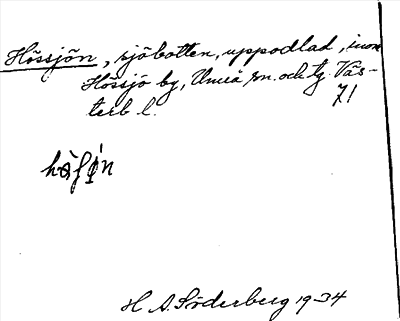 Hössjön, sjöbotten, uppodlad, inom
Hössjö by, Umeå sn. och tg. Väs-
terb l. 71
H A. Söderberg 19-34